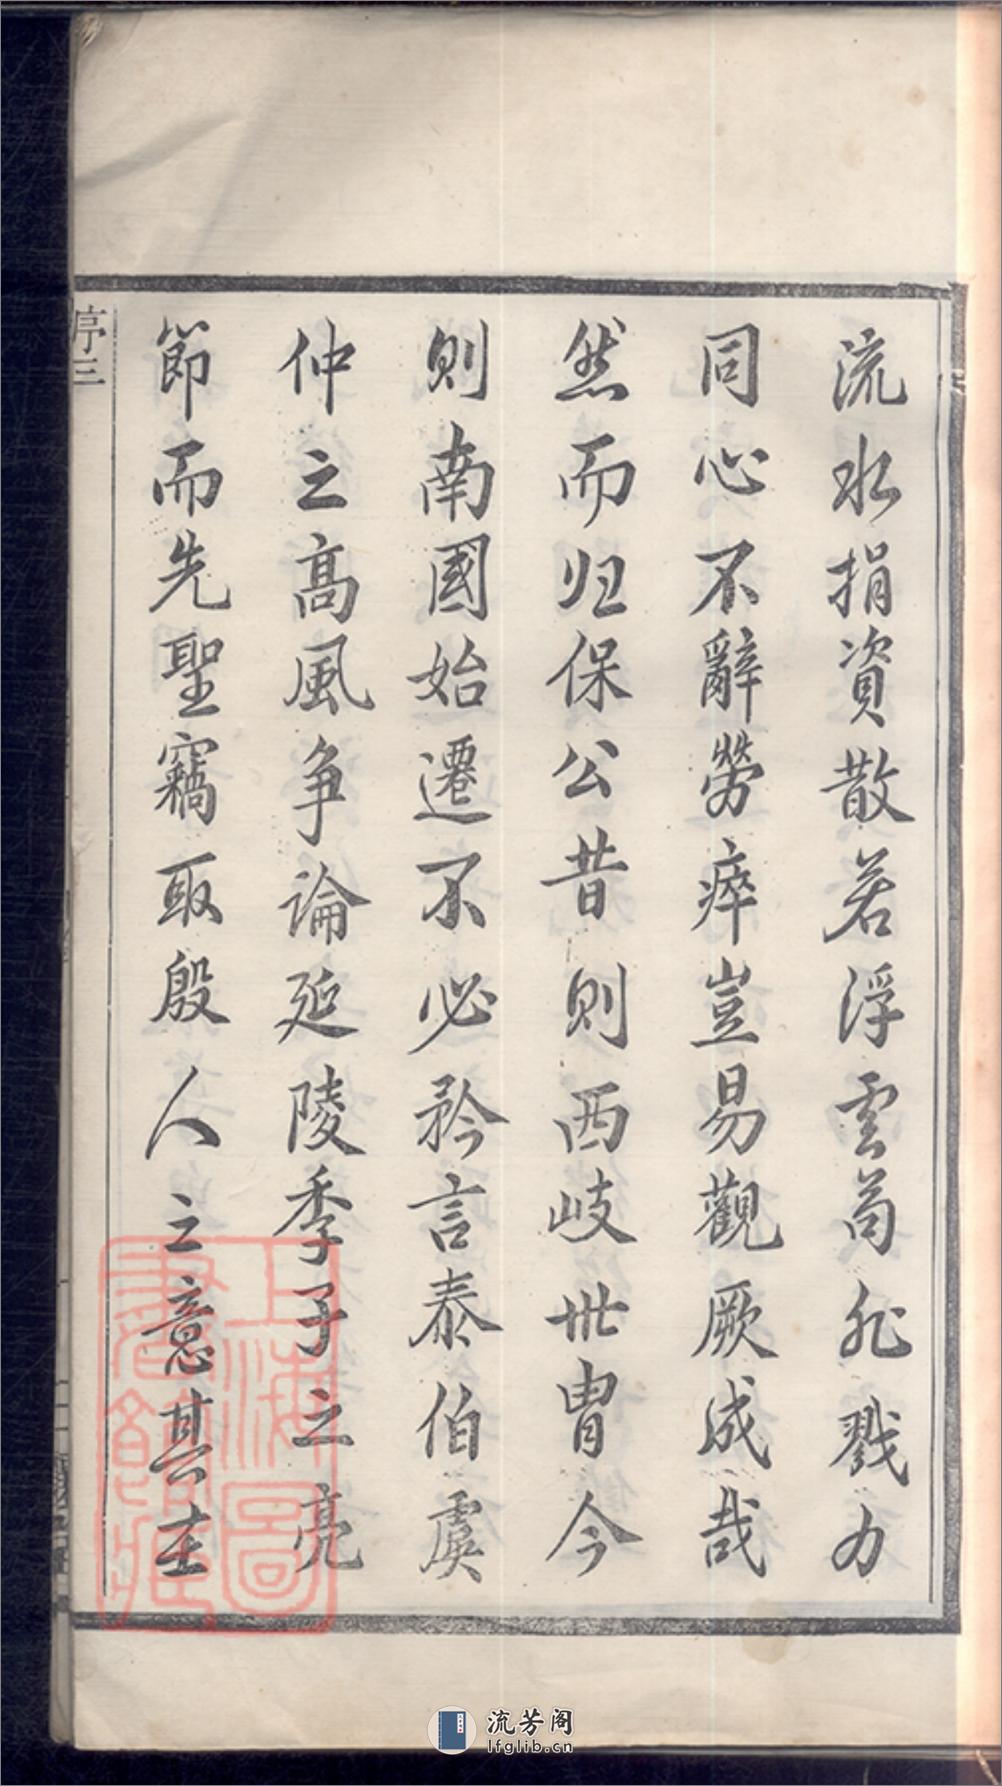 流水捐資散若浮雲苟非戮力
同心不辭勞瘁豈易觀厥成哉
然而归保公昔則西岐世胄今
則南國始遷不必矜言泰伯虞
仲之高風争論延陵季子之亮
節而先聖竊取殷人之意其在
序三
上海圖書館藏
流芳阁
lfglib.cn